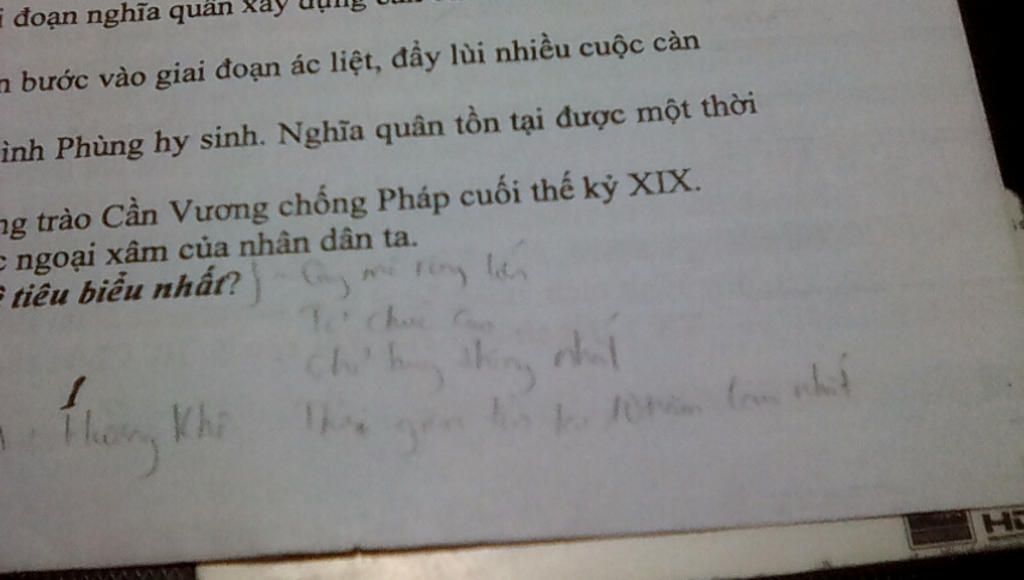 đoạn nghĩa quân xây dựng
bước vào giai đoạn ác liệt, đẩy lùi nhiều cuộc càn
ình Phùng hy sinh. Nghĩa quân tồn tại được một thời
ng trào Cần Vương chống Pháp cuối thế kỷ XIX.
c ngoại xâm của nhân dân ta.
tiêu biểu nhất?
Tổ chức cao
Chỉ huy thống nhất
Hương Khê Thời gian tồn tại 10 năm nhất